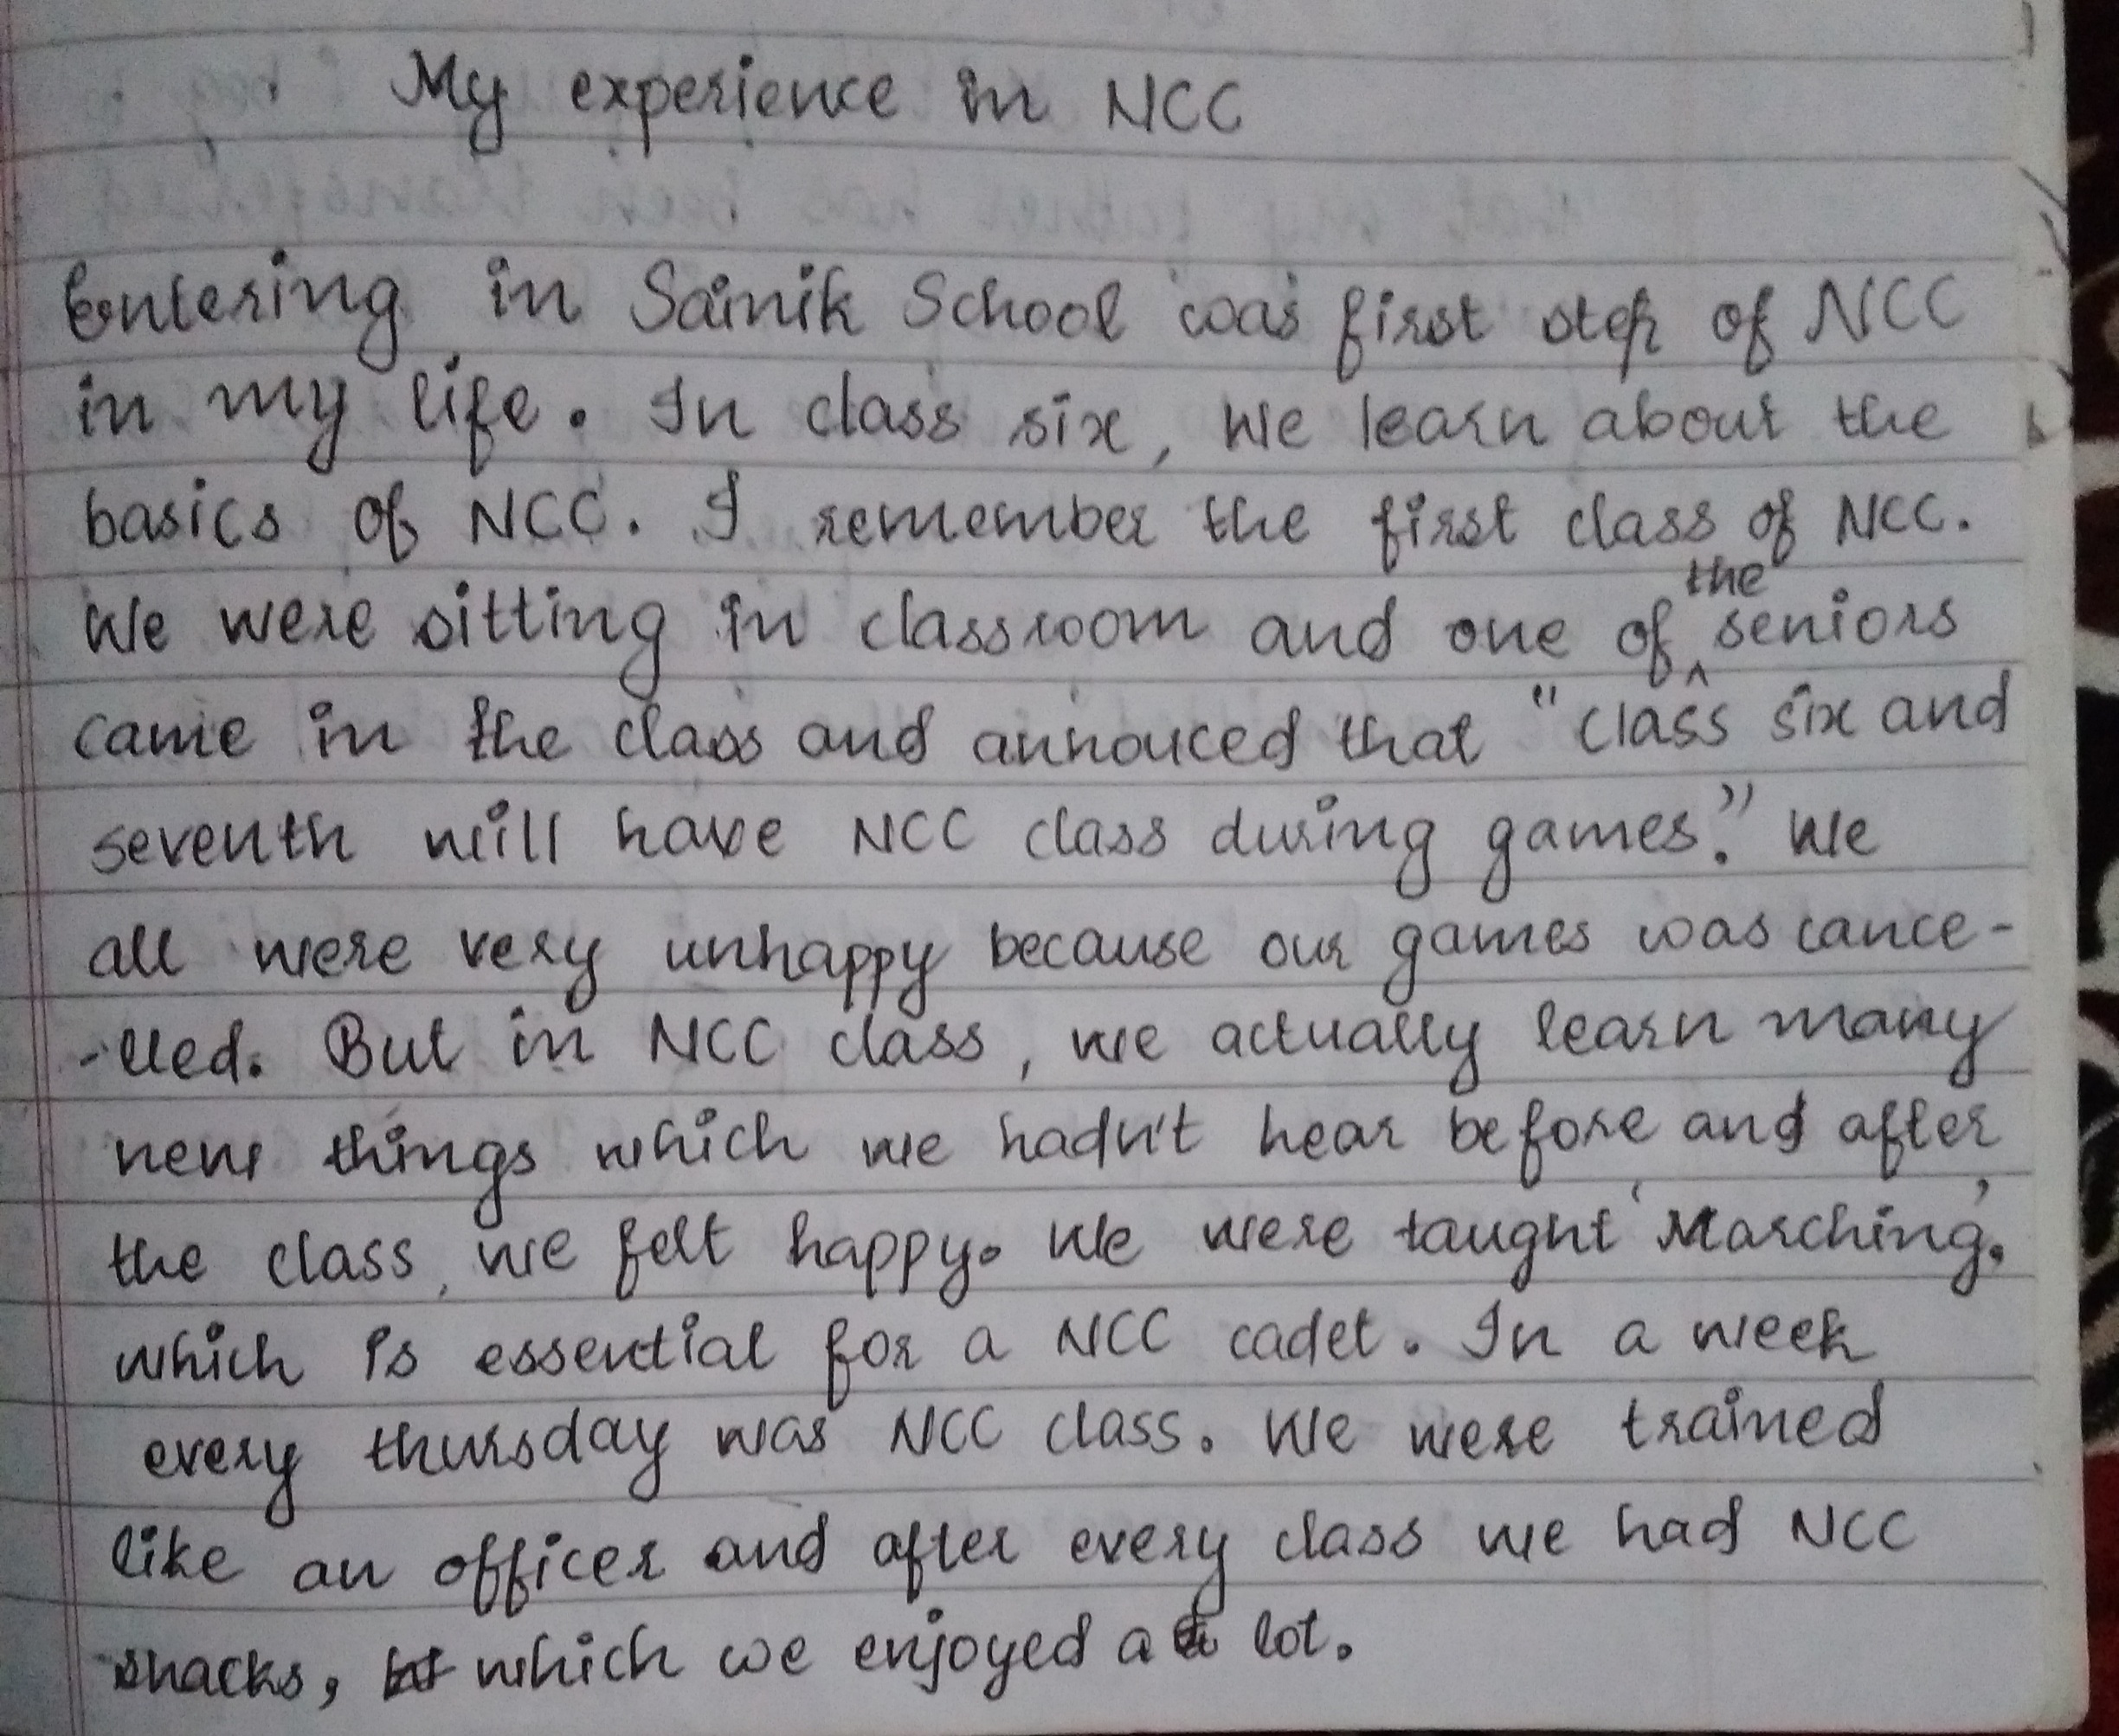 My experience in NCC
Entering in Sainik School was first step of NCC
in my life. In class six, We learn about the
basics of NCC. I remember the first class of NCC.
We were sitting in classroom and one of the seniors
came in the class and annouced that "class six and
seventh will have NCC class during games." We
all were very unhappy because our games was cance-
-lled. But in NCC class, we actually learn many
new things which we hadn't hear before and after
the class, we felt happy. We were taught 'Marching'.
which is essential for a NCC cadet. In a week
every thursday was NCC class. We were trained
like an officer and after every class we had NCC
snacks, which we enjoyed a lot.